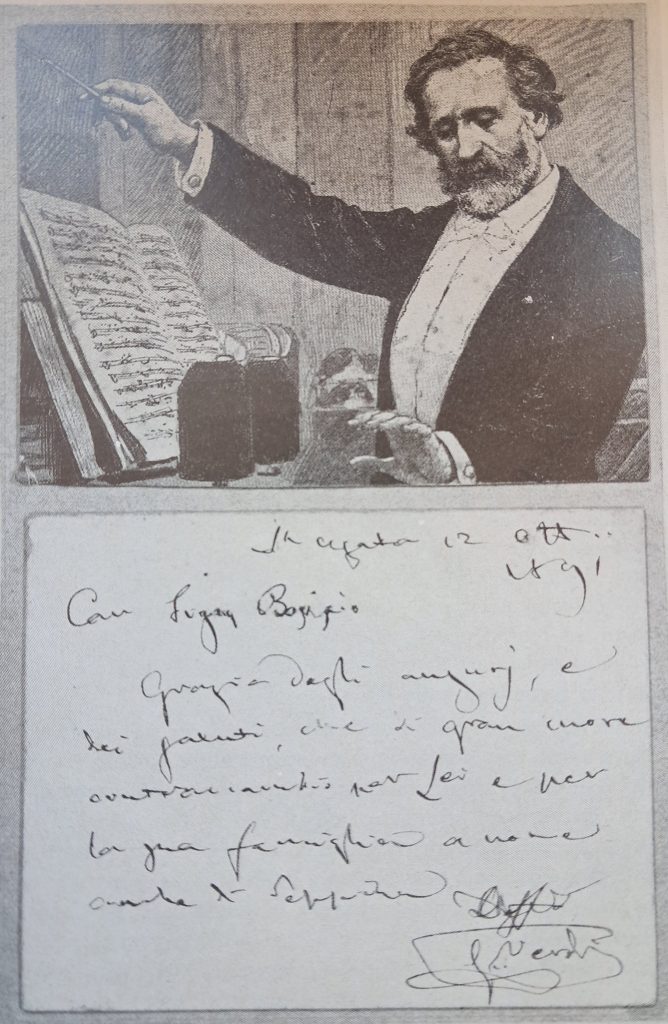 St Agata 12 Ott..
1891
Caro Signor
Grazie degli augurj, e
dei saluti, che di gran cuore
contraccambio per Lei e per
la sua famiglia a nome
anche di Peppina
G. Verdi